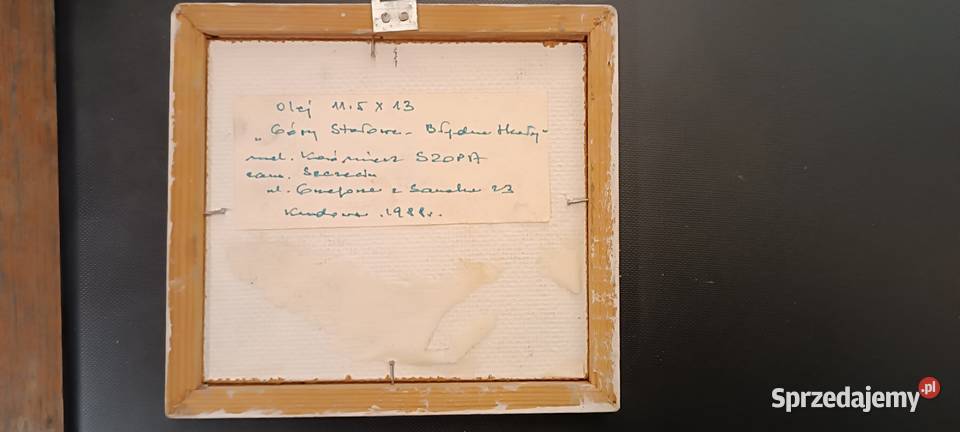 Olej 11.5 x 13
"Góry Stołowe - Błędne Skały"
mal. Kazimierz SZOPA
zam. Szczecin
ul. Grzegorza z Sanoka 23
Kudowa 1988r.
Sprzedajemy.pl